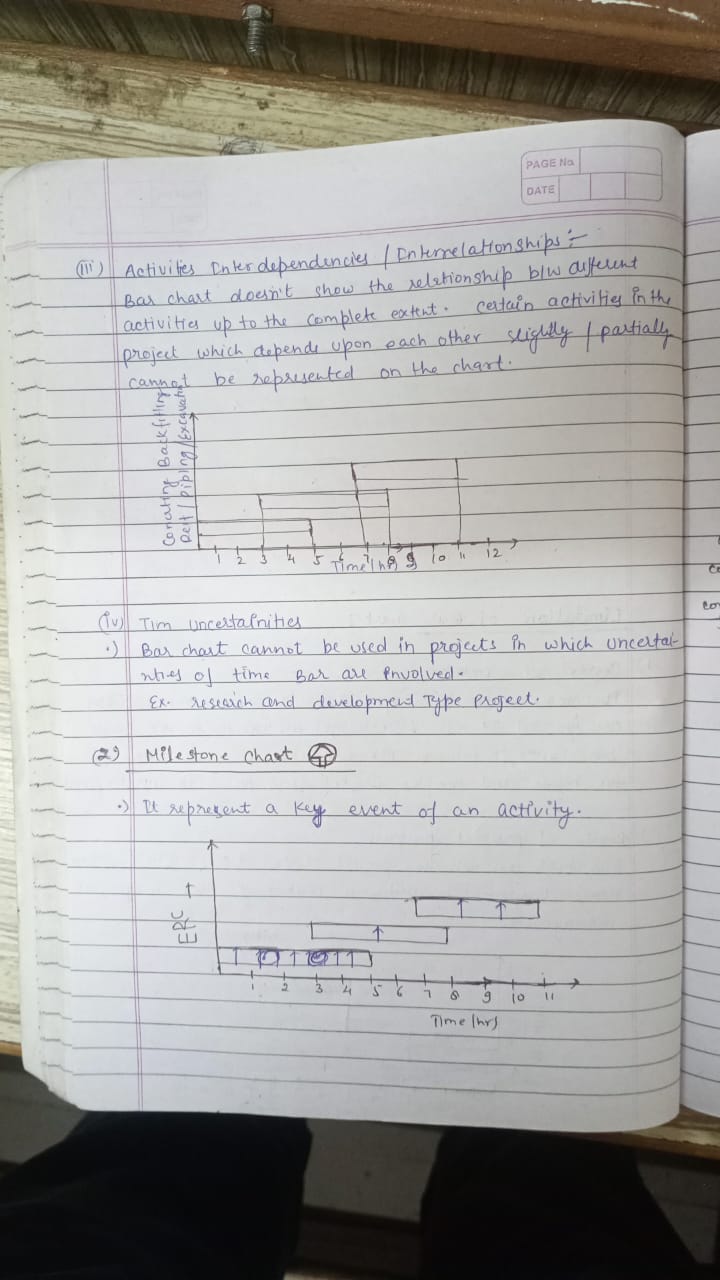 PAGE No.
DATE
(iii) Activities Interdependencies / Interrelationships :-
Bar chart doesn't show the relationship b/w different
activities up to the complete extent. Certain activities in the
project which depends upon each other slightly / partially
cannot be represented on the chart.
Backfilling
/ Excavation
1 2 3 4 5 6 7 8 9 10 11 12
Time (hr)
(iv) Tim uncertainities
•) Bar chart cannot be used in projects in which uncertai-
nties of time Bar are involved.
Ex. research and development Type Project.
(2) Milestone Chart
•) It represent a key event of an activity.
ERC →
1 2 3 4 5 6 7 8 9 10 11
Time (hrs)